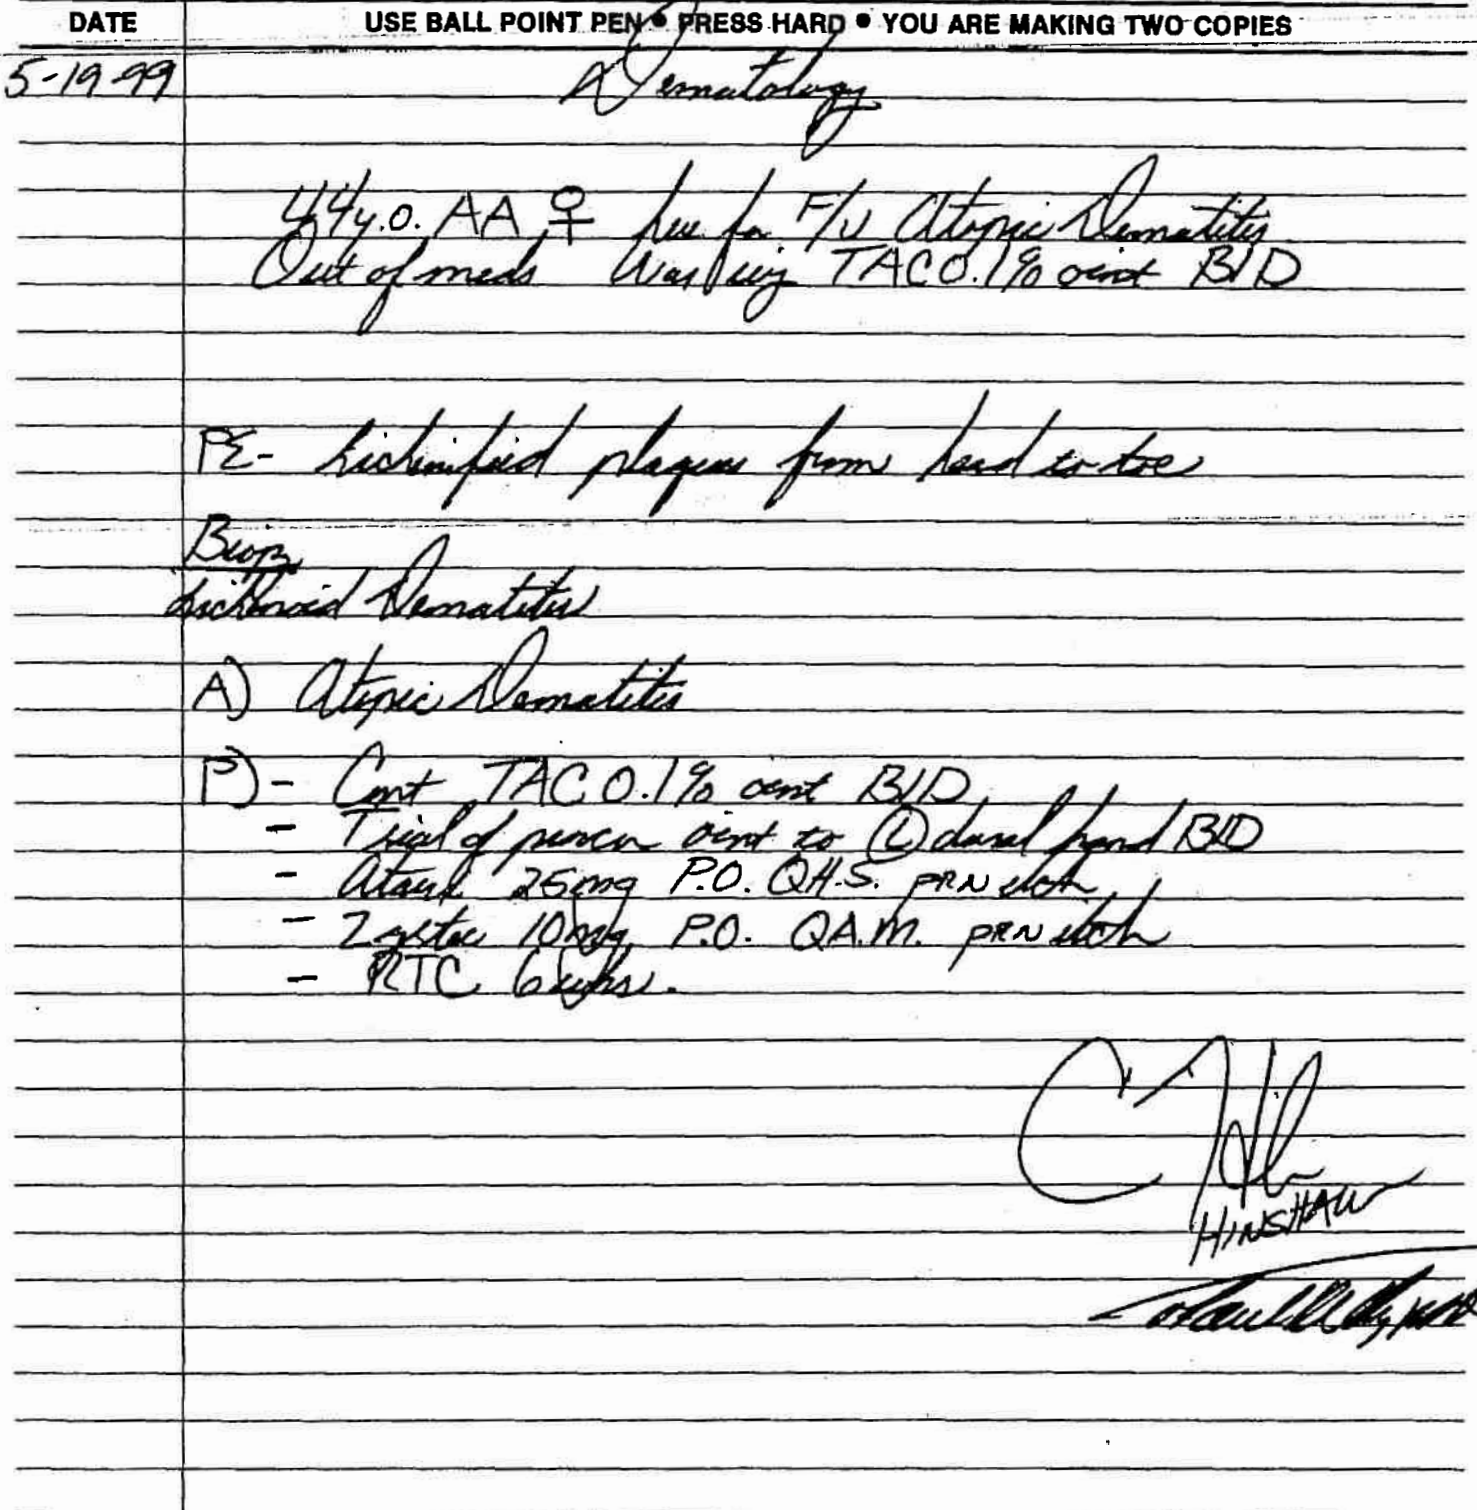 DATE USE BALL POINT PEN • PRESS HARD • YOU ARE MAKING TWO COPIES
5-19-99 Dermatology
44y.o. AA ♀ here for F/U Atopic Dermatitis
Out of meds Was using TAC 0.1% oint BID
PE- Lichenified plaques from head to toe
Biopsy
Lichenoid Dermatitis
A) Atopic Dermatitis
P) - Cont TAC 0.1% oint BID
- Trial of oint to Ⓛ dorsal hand BID
- Atarax 25mg P.O. Q.H.S. PRN itch
- Zyrtec 10mg P.O. QA.M. PRN itch
- RTC 6 wks.
HINSHAW